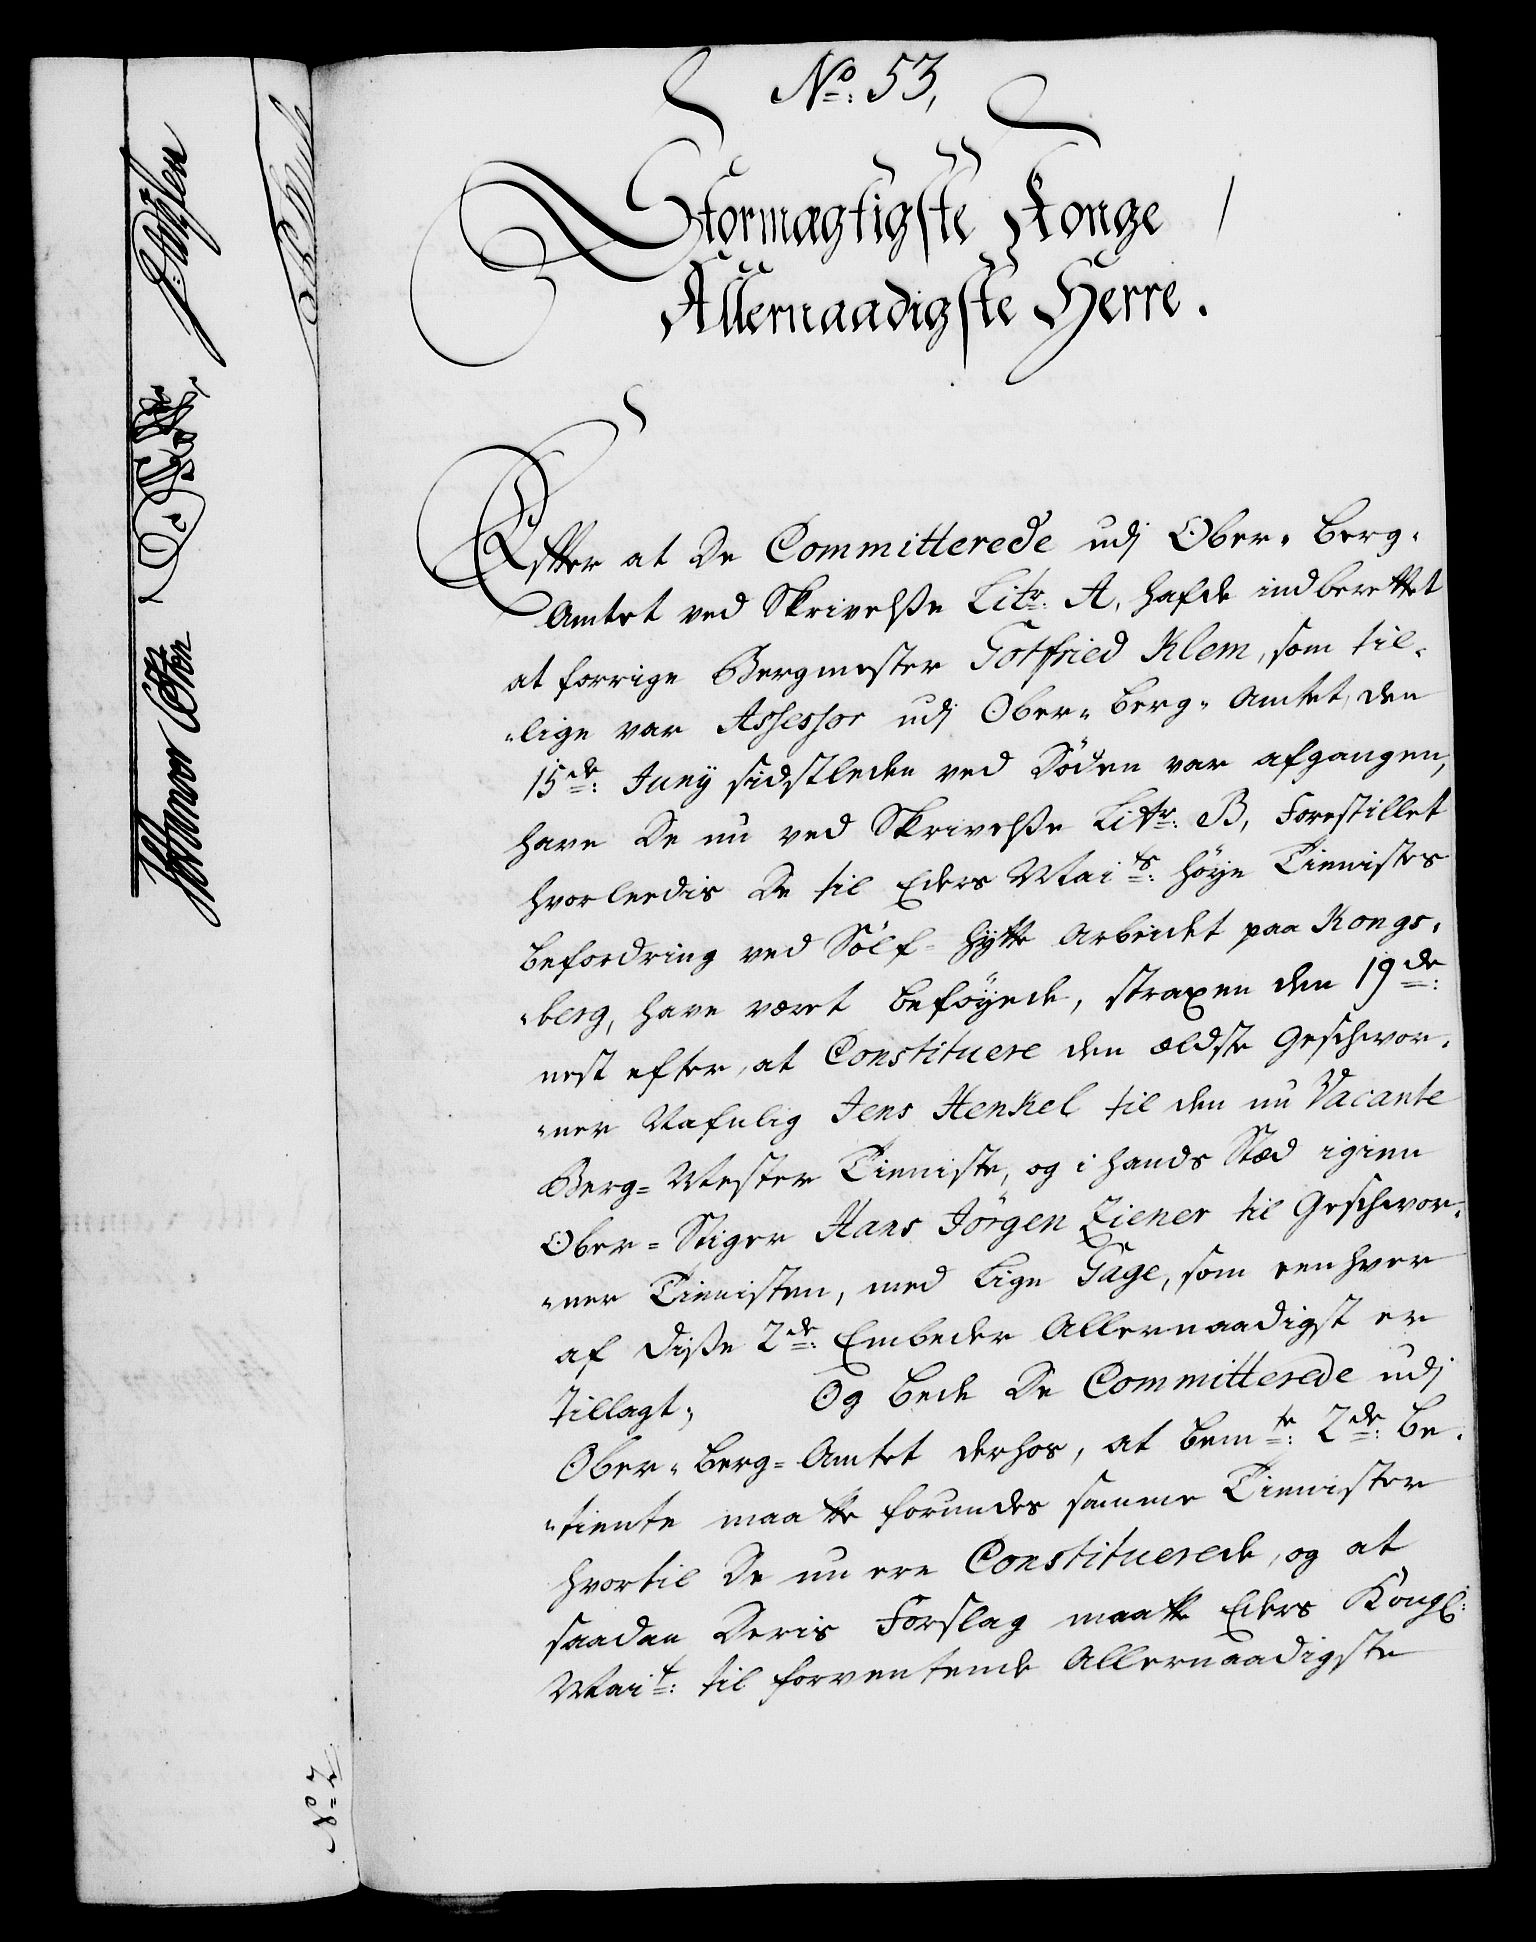 No: 53,
Stormægtigste Konge
Allernaadigste Herre.
Efter at De Committerede udj Ober- Berg-
Amtet ved Skrivelße Litr: A, hafde indberettet
at forrige Bergmester Gotfried Klem, som til-
-lige var Assessor udj Ober- Berg- Amtet, den
15de: Junij sidstleden ved Döden var afgangen,
have De nu ved Skrivelße Litr: B, Forestillet
hvorleedis De til Eders Maits: höye Tienistes
befordring ved Sölf- hytte Arbeidet paa Kongs-
-berg, have været beföyede, straxen den 19de:
nest efter, at Constituere den ældste Geschwor-
-ner Nafnlig Jens Henkel til den nu Vacante
Berg- Mester Tieniste, og i hands Stæd igien
Ober- Stiger Hans Jörgen Ziener til Geschwor-
-ner Tienisten, med lige Gage, som een hver
af diße 2de: Embeder Allernaadigst er
Tillagt; Og bede De Committerede udj
Ober- Berg- Amtet derhos, at bemte: 2de: Be-
-tiente maatte forundes samme Tienister
hvortil De nu ere Constituerede, og at
saadan Deris Forslag maatte Eders Kongl:
Mait: til forventende Allernaadigste
No 7